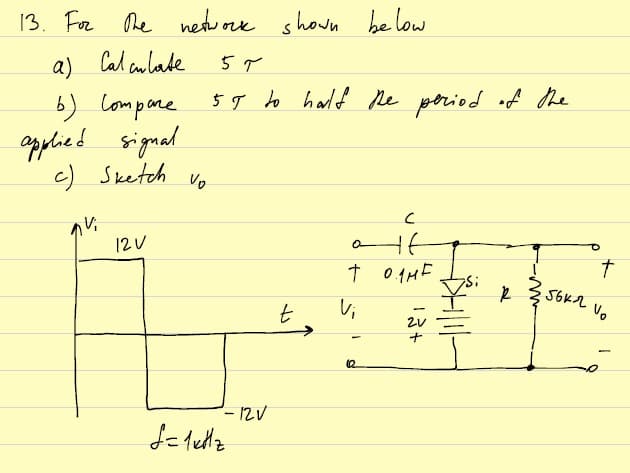 13. For the network shown below
a) Calculate 5 τ
b) Compare 5 τ to half the period of the
applied signal
c) Sketch vo
Vi
12V
t
-12V
f = 1kHz
C
+ 0.1μF
Si
Vi
-
2V
+
-
R
56kΩ
+
Vo
-